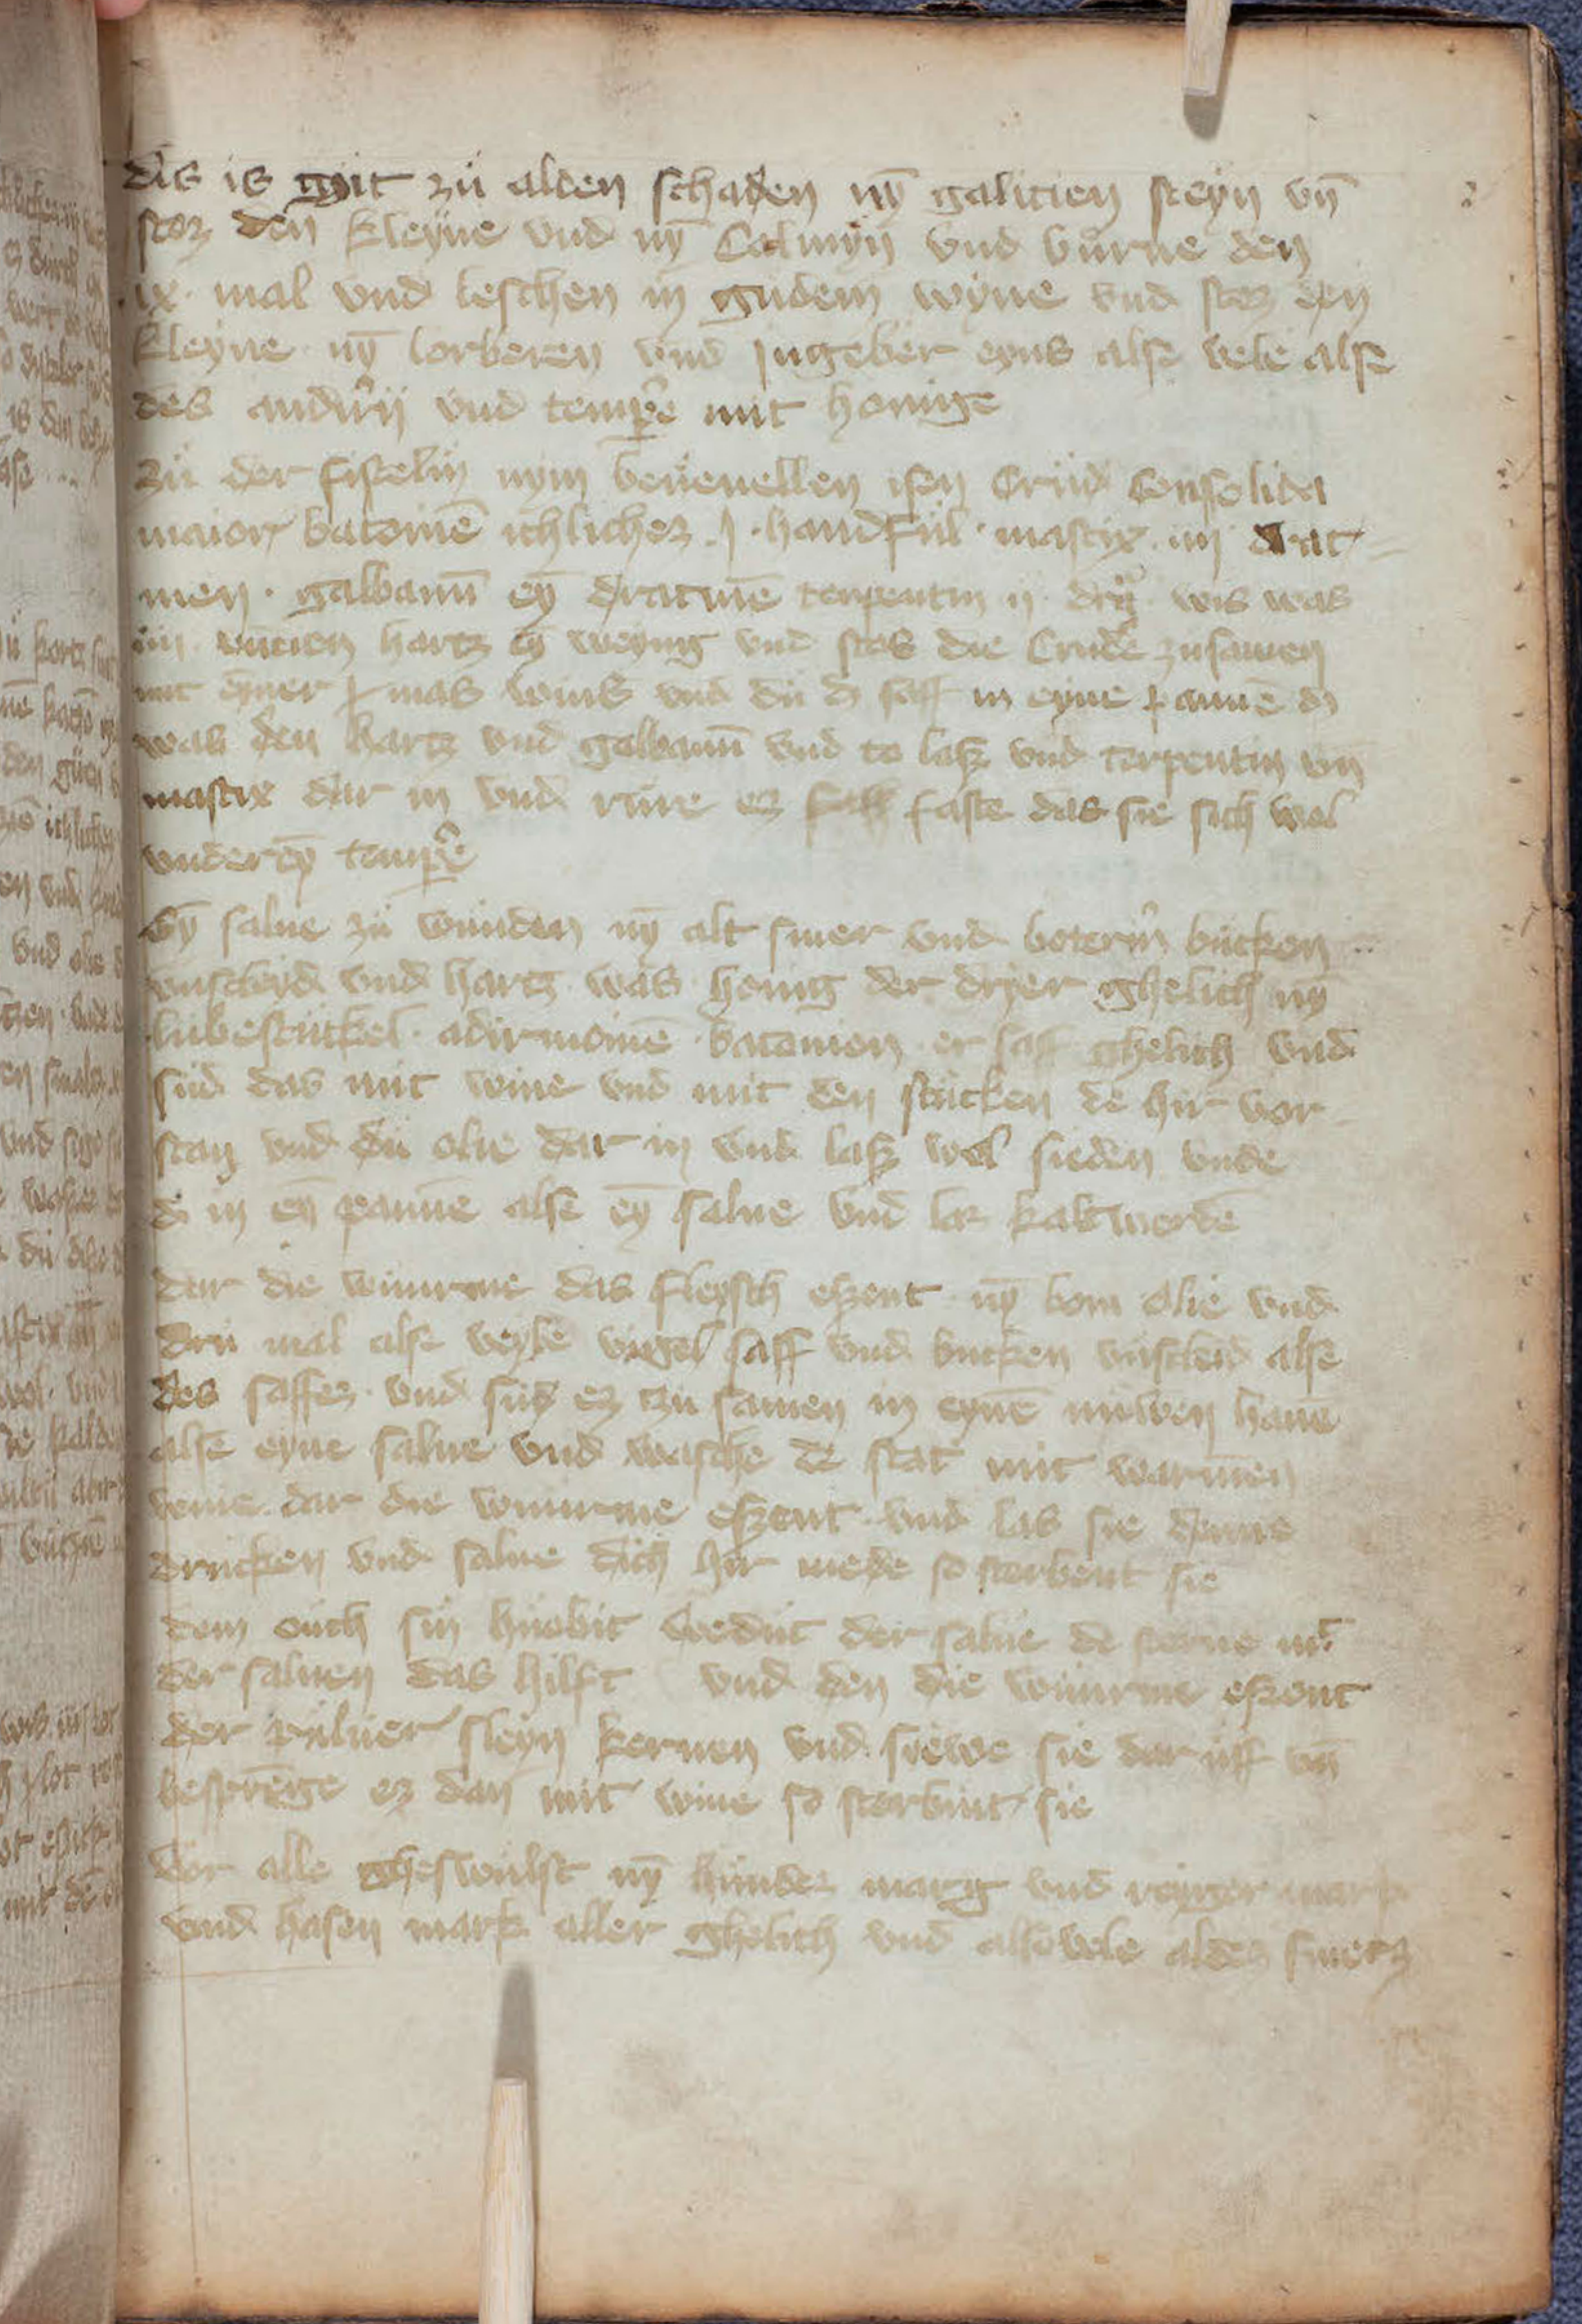 dis is gůt zů alden schaden nȳ galicien steyn vn̄
stoz den kleyne vnd nȳ Calmyn vnd bůrne den
.ix. mal vnd leschen in gůdem wyne vnd stoz den
kleyne nȳ lorberen vnd Jngeber eyns alse vele alse
des andirn vnd temp̲e mit honige
Zů der fistelin nym beuenellen isen Crůd Consolida
maior batonie ichlichez .j. handfůl mastix .iij drac
men . galbanū eȳ dracme terpentin ij drg̊ wis was
iiij vncien hartz eȳ weynig vnd stos die Crude zusamen
mit eyner mas wins vnd dů dz saff in eyne panne dz
was den hartz vnd galbanū vnd to lasz vnd terpentin vn̄
mastix dar in vnd růre ez faste das sie sich wol
vnderēy temp̲e
Eȳ salue zů wůnden nȳ alt smer vnd boterin bucken
vnscleyd vnd hartz was honig der dryer ghelich nȳ
lubestuckel adirmonie batonien er saff ghelich vnd
sůd das mit wine vnd mit den stucken de hir vor
stan vnd dů olie dar in vnd lasz wol sieden vnde
di in eȳ panne alse eȳ salue vnd laz kalt werdē
dar die wůrme das fleysch eszent nȳ bom olie vnd
drů mal alse veyle vigel saff vnd bucken vnscleid alse
des saffez vnd sůd ez zu samen in eynē nuwen hauē
alse eyne salue vnd wasche de stat mit warmen
wine dar die wůrme eszent vnd las sie denne
drucken vnd salue dich hir mede so sterbent sie
dem ouch sin hůobit wedut der salue de sterne mt
der saluen das hilft vnd den die wůrme eszent
der puluer sleyn kernen vnd siewe sie dar uff vn̄
besprenge ez dan mit wine so sterbint sie
Vor alle gheswůlst nȳ hůndez marg vnd reyger mark
vnd hasen mark aller ghelich vnd alsovele aldez smerz